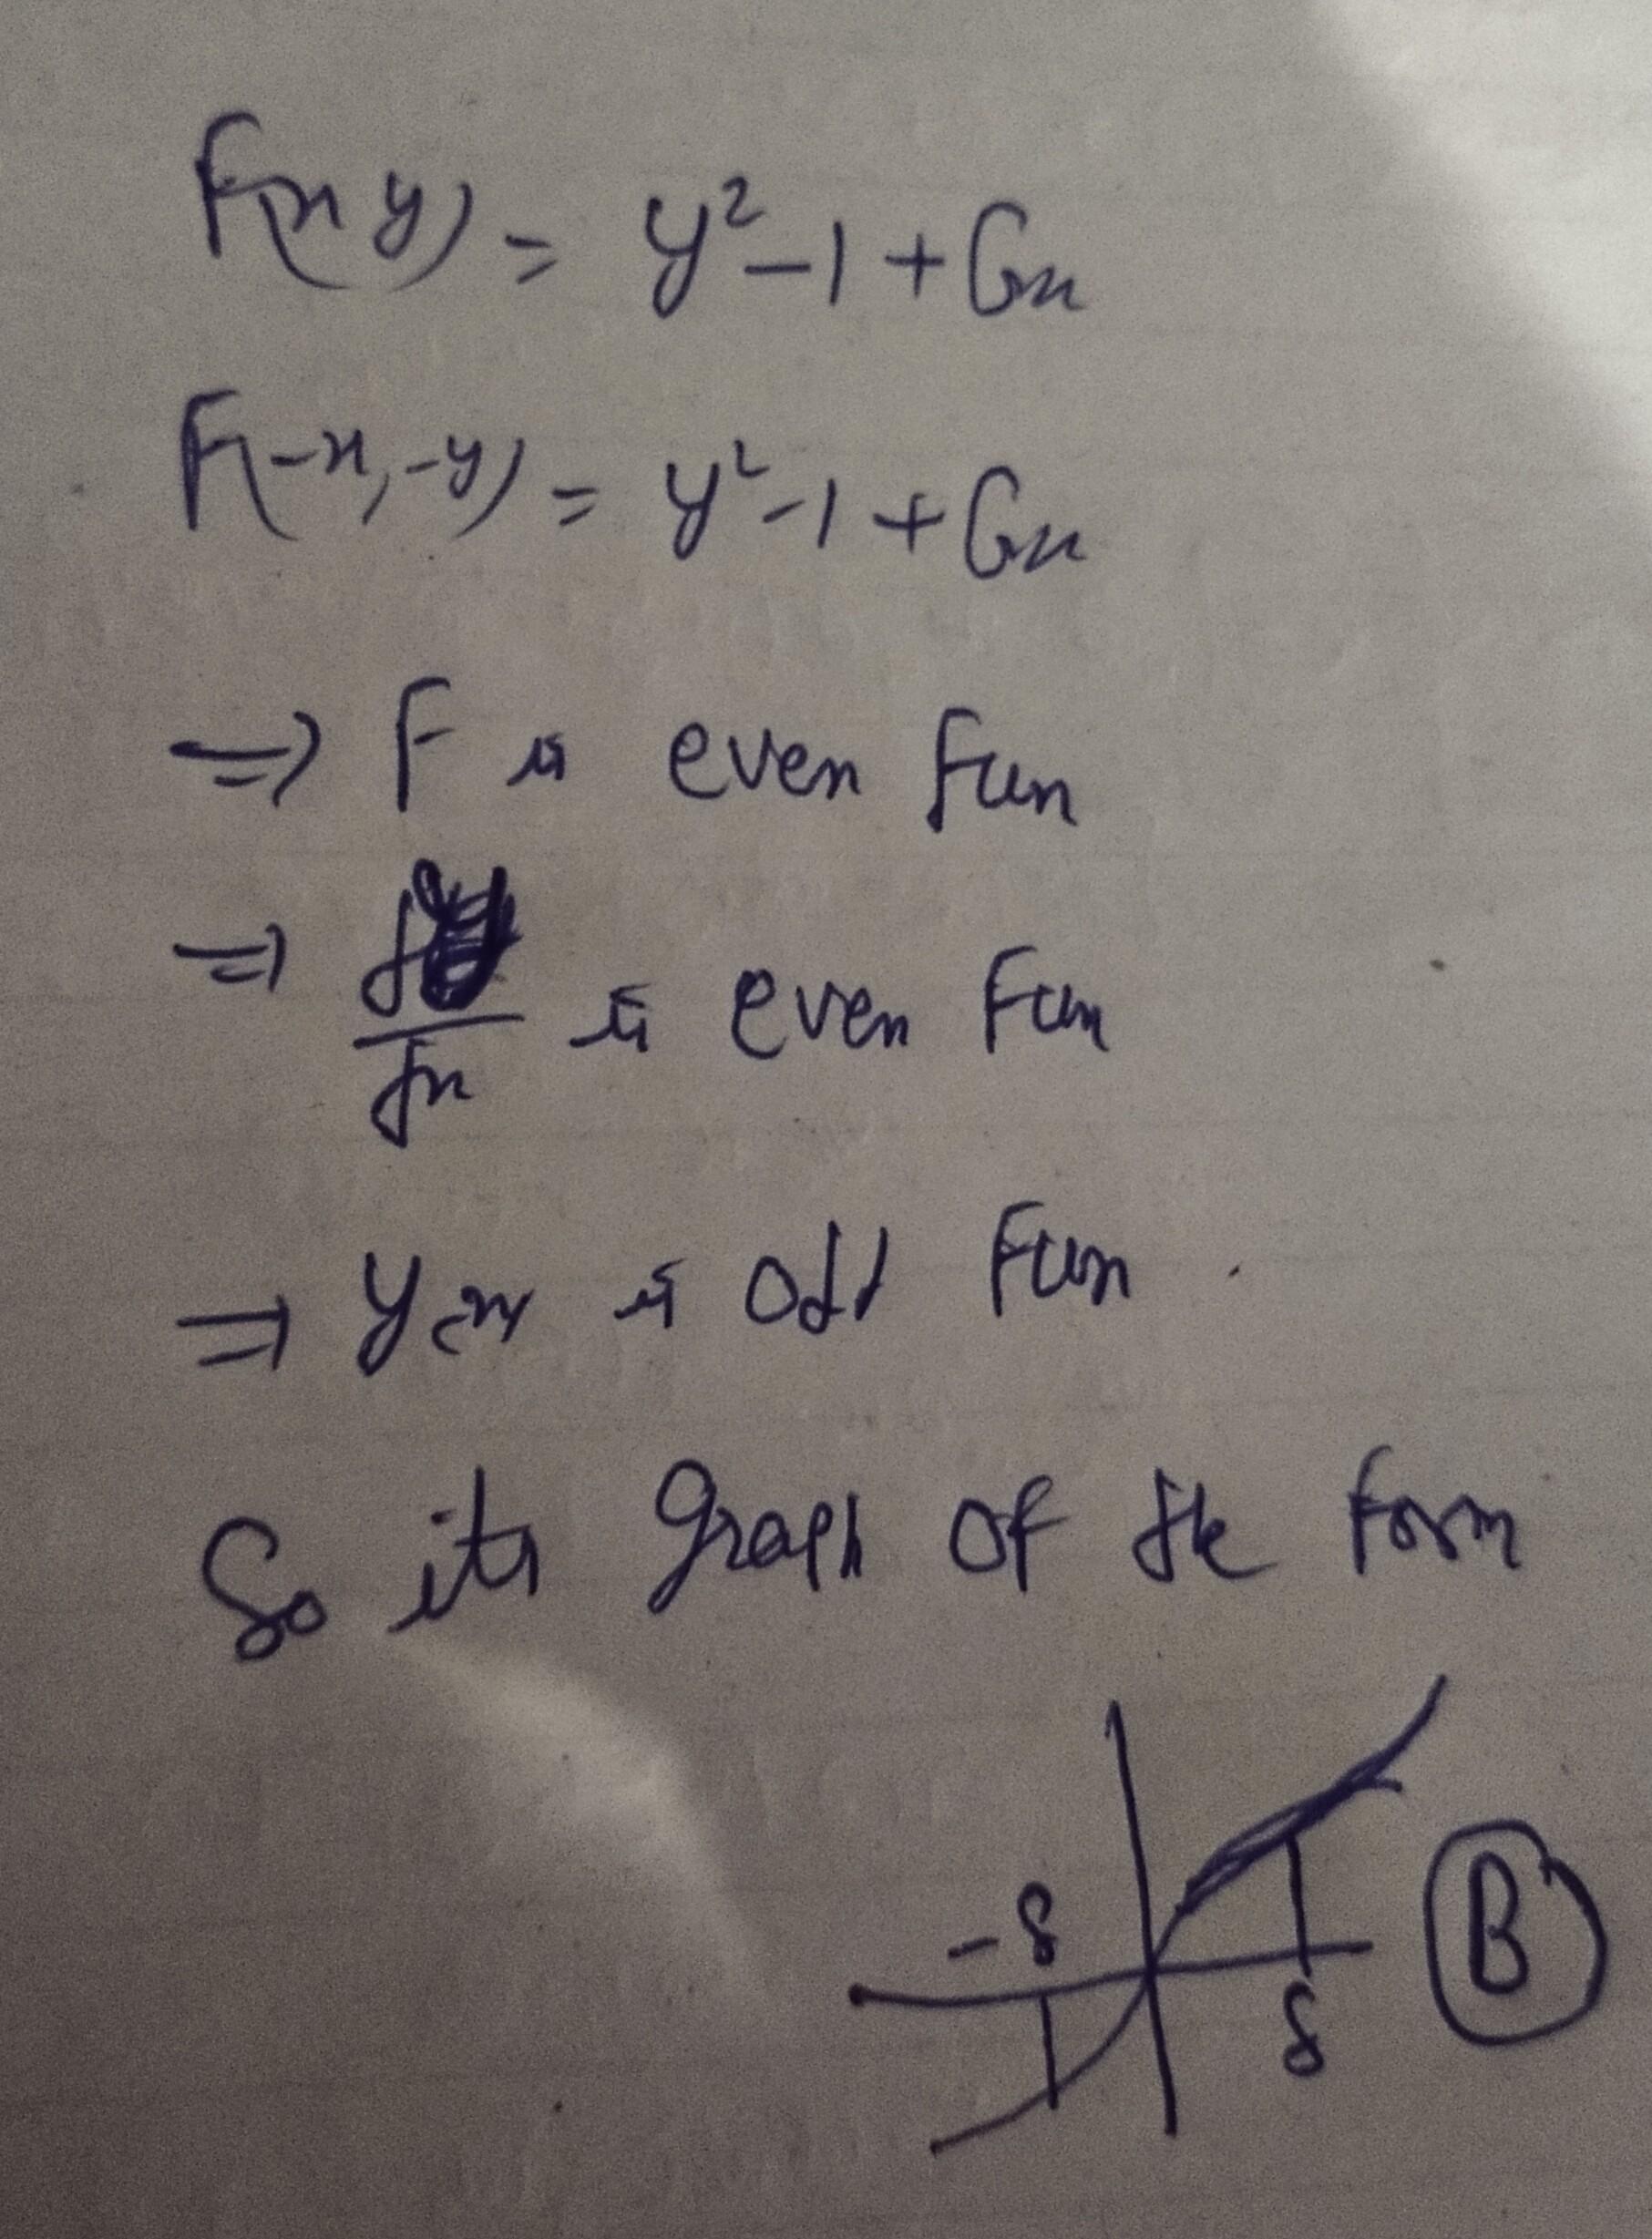 F(x y) = y² - 1 + Cosx
F(-x, -y) = y² - 1 + Cosx
⇒ F is even fun
⇒ d/dx is even Fun
⇒ y(x) is odd Fun.
So its graph of the form
-δ
δ
B